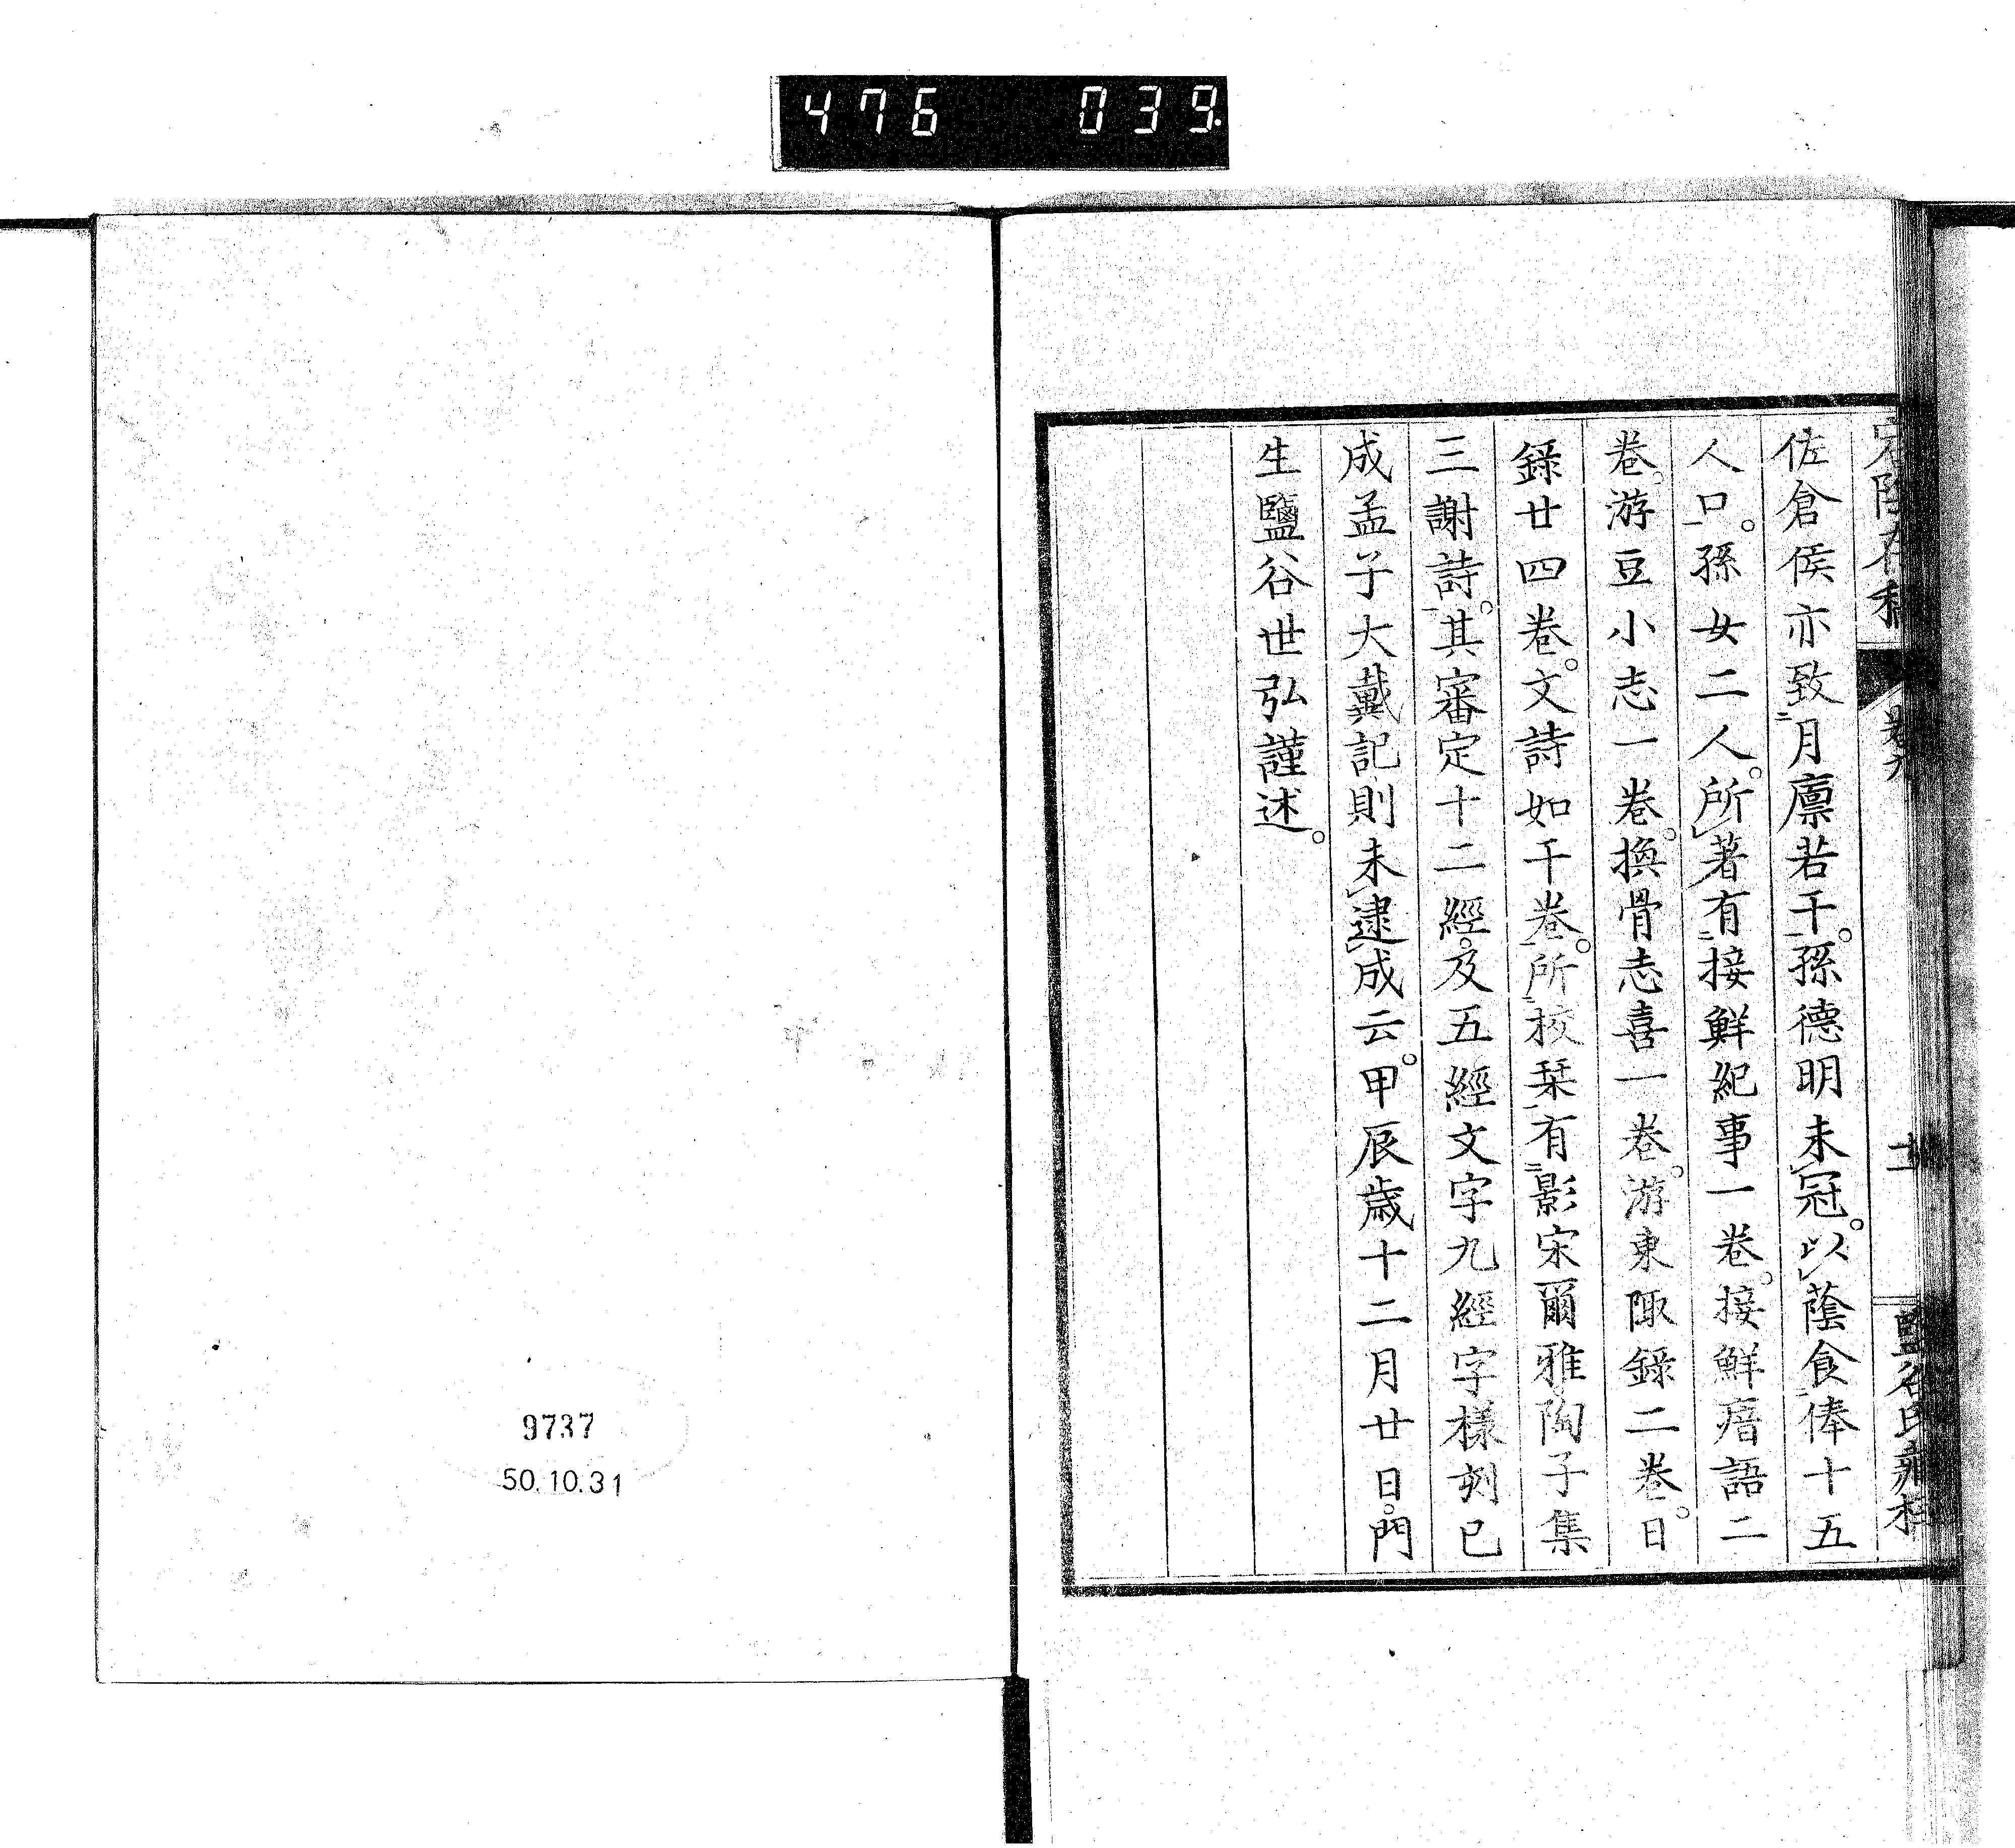 476 039
佐倉侯亦致月廩若干。孫德明未冠。以蔭食俸十五
人口。孫女二人。所著有接鮮紀事一卷。接鮮瘖語二
卷。游豆小志一卷。換骨志喜一卷。游東陬錄二卷。日
錄廿四卷。文詩如干卷。所挍琹有影宋爾雅。陶子集
三謝詩。其審定十二經。及五經文字九經字樣刻已
成孟子大戴記則未逮成云。甲辰歲十二月廿日。門
生鹽谷世弘謹述。
卷九
9737
50.10.31